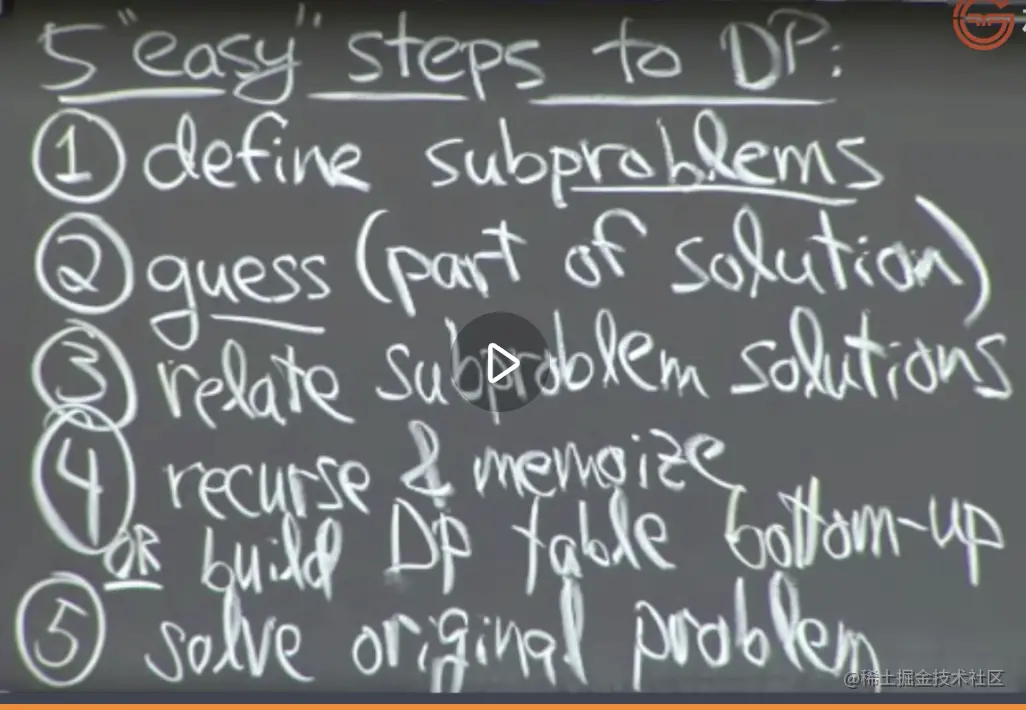 5 "easy" steps to DP:
① define subproblems
② guess (part of solution)
③ relate subproblem solutions
④ recurse & memoize
OR build DP table bottom-up
⑤ solve original problem
@稀土掘金技术社区